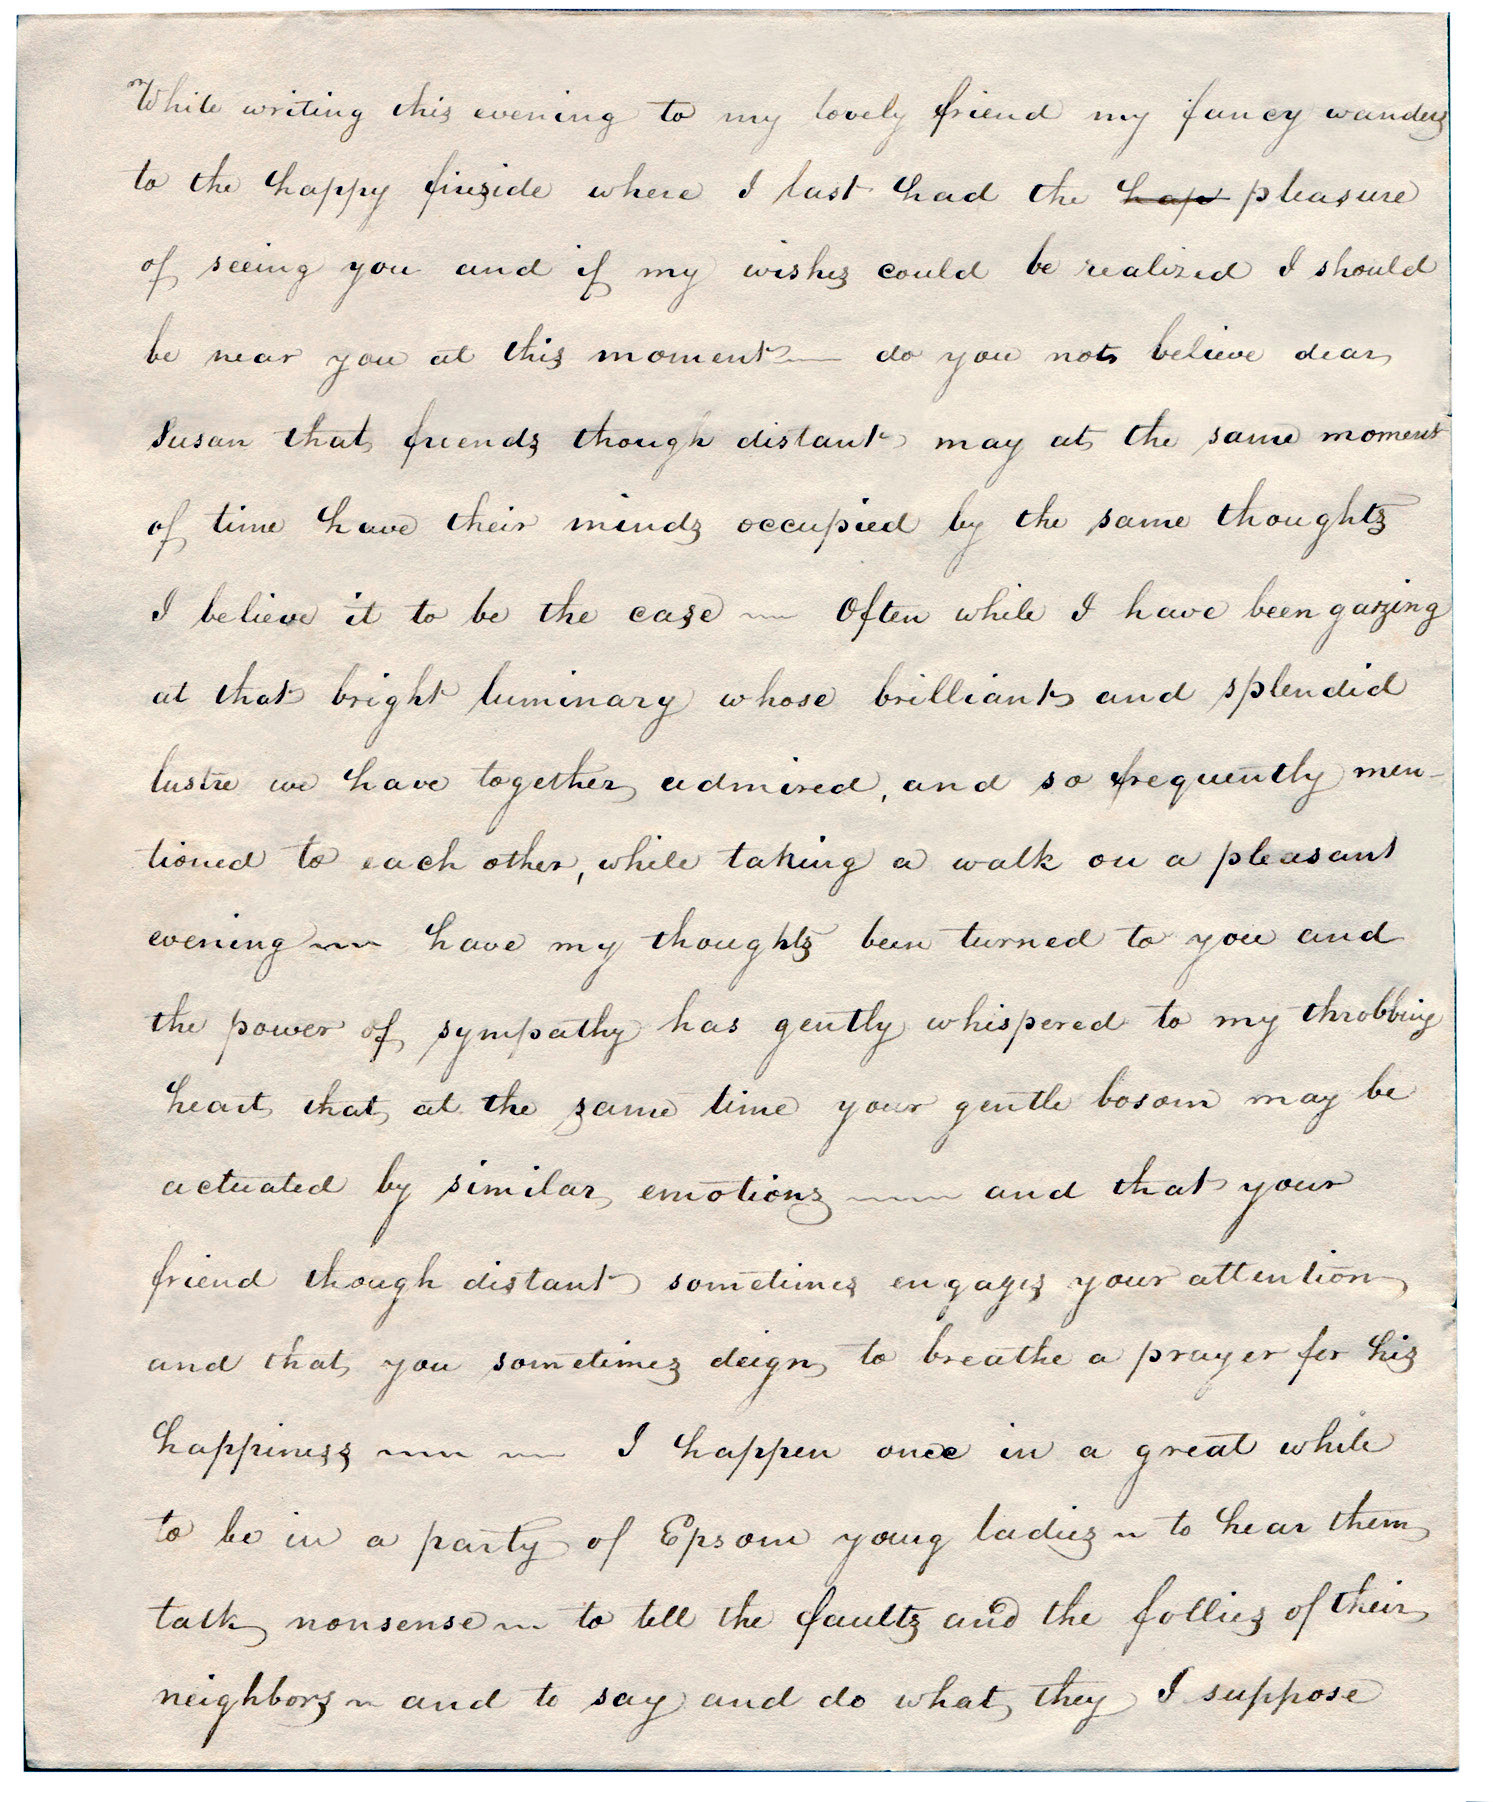 While writing this evening to my lovely friend my fancy wanders
to the happy fireside where I last had the hap pleasure
of seeing you and if my wishes could be realized I should
be near you at this moment — do you not believe dear
Susan that friends though distant may at the same moment
of time have their minds occupied by the same thoughts
I believe it to be the case — Often while I have been gazing
at that bright luminary whose brilliant and splendid
lustre we have together admired, and so frequently men-
tioned to each other, while taking a walk on a pleasant
evening — have my thoughts been turned to you and
the power of sympathy has gently whispered to my throbbing
heart that at the same time your gentle bosom may be
actuated by similar emotions — and that your
friend though distant sometimes engages your attention
and that you sometimes deign to breathe a prayer for his
happiness — — I happen once in a great while
to be in a party of Epsom young ladies — to hear them
talk nonsense — to tell the faults and the follies of their
neighbors — and to say and do what they I suppose